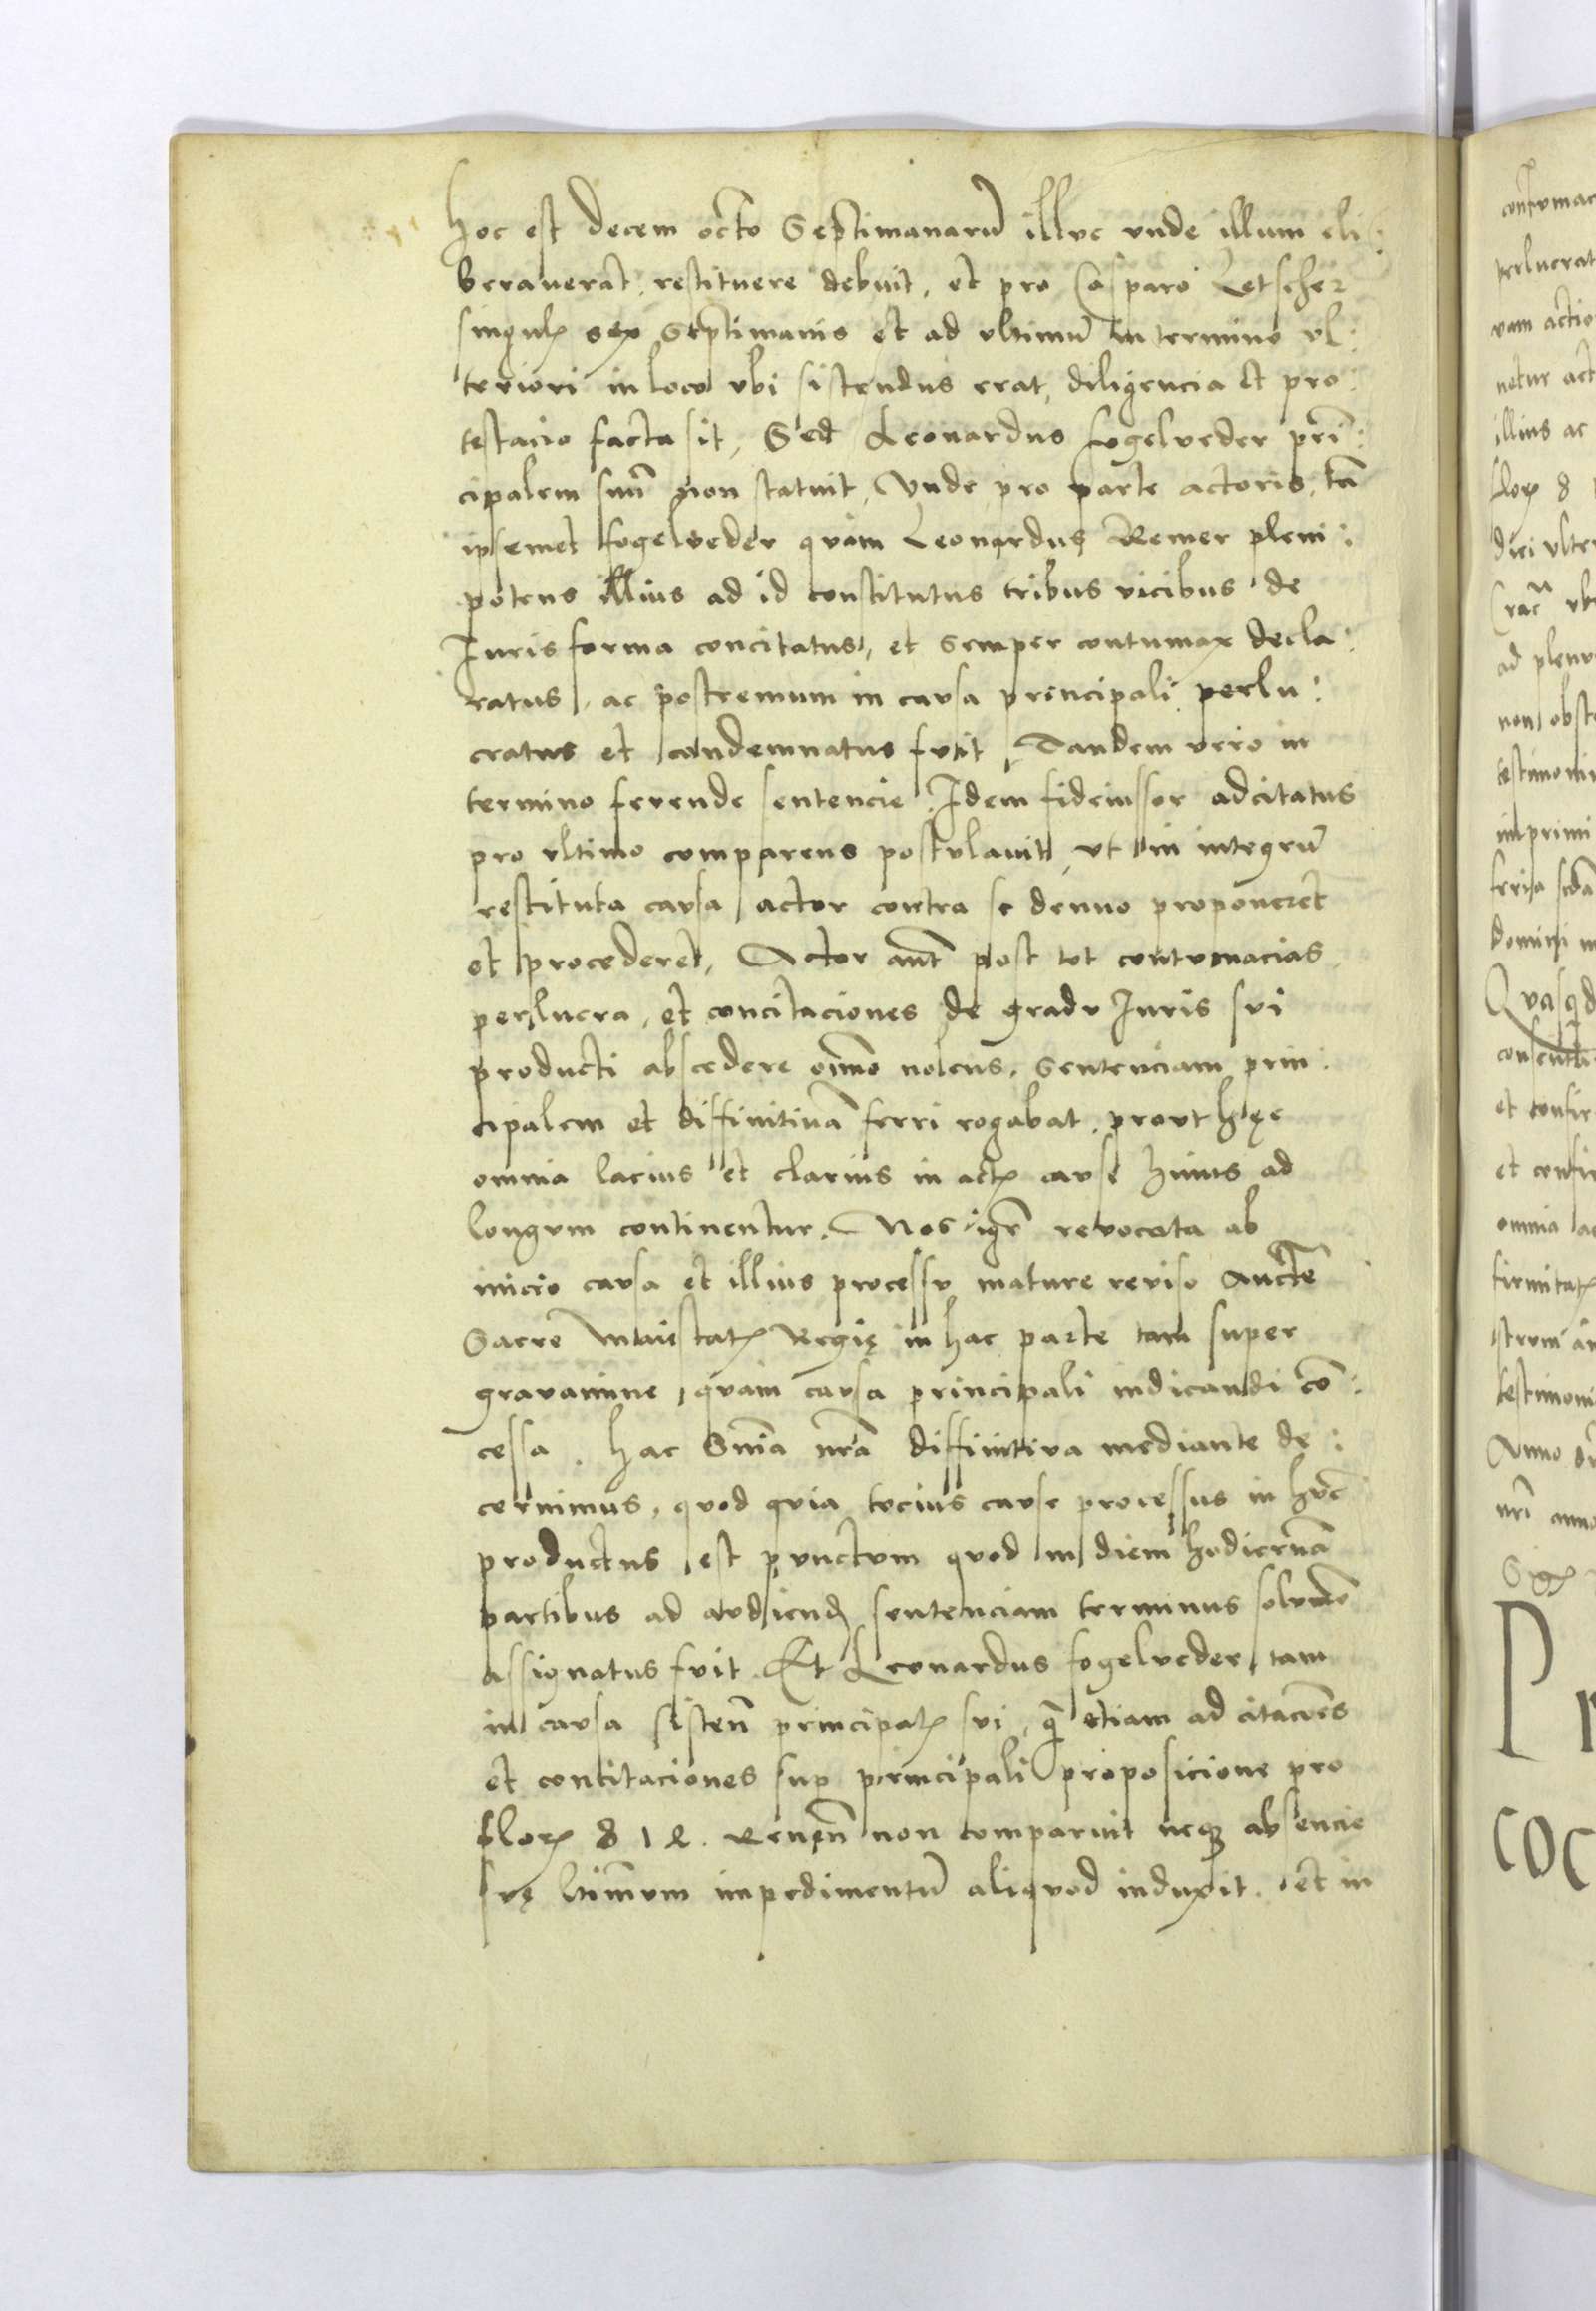 hoc est decem octo Septimanarũ illuc vnde illum eli:
beraverat, restituere debuit, et pro Casparo Letscher
singulꝭ sex Septimanis et ad vltimũ in termino vl:
teriori in loco vbi sistendus erat, diligencia et pro:
testacio facta sit, Sed Leonardus fogelveder prĩ:
cipalem suũ non statuit, Vnde pro parte actoris, tã
ipsemet fogelveder quam Leonardus Remer pleni:
potens illius ad id constitutus tribus vicibus de
Iuris forma concitatus, et semper contumax decla:
ratus, ac postremum in causa principali perlu:
cratus et condemnatus fuit, Tandem vero in
termino ferende sentencie. Idem fideiussor adcitatus
pro vltimo comparens postulavit, vt in integrũ
restituta causa actor contra se denuo proponeret
et procederet, Actor aũt post tot contumacias
perlucra, et concitaciones de gradu Iuris sui
producti abscedere oĩno nolens, Sentenciam prin:
cipalem et diffinitivã ferri rogabat, prout hęc
omnia lacius et clarius in actꝭ cause huius ad
longum continentur. Nos igr̃ revocata ab
inicio causa et illius processu mature reviso Aucte
Sacre Maiestatꝭ Regię in hac parte tam super
gravamine, quam causa principali iudicandi cõ:
cessa. hac Snĩa nrã diffinitiva mediante de:
cernimus, quod quia tocius cause processus in hũc
productus est punctum quod in diem hodiernã
partibus ad audiendꝭ sentenciam terminus solumõ
assignatus fuit. Et Leonardus fogelveder, tam
in causa sisteñ principalꝭ sui, q̃ etiam ad citacões
et concitaciones sup principali proposicione pro
florꝭ 812. Reneñ non comparuit neqꝫ absencie
suę ltimum impedimentũ aliquod induxit. et in
P
coc